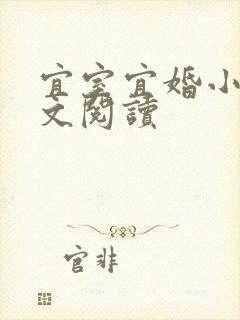 宜室宜婚小
文閱讀
官非